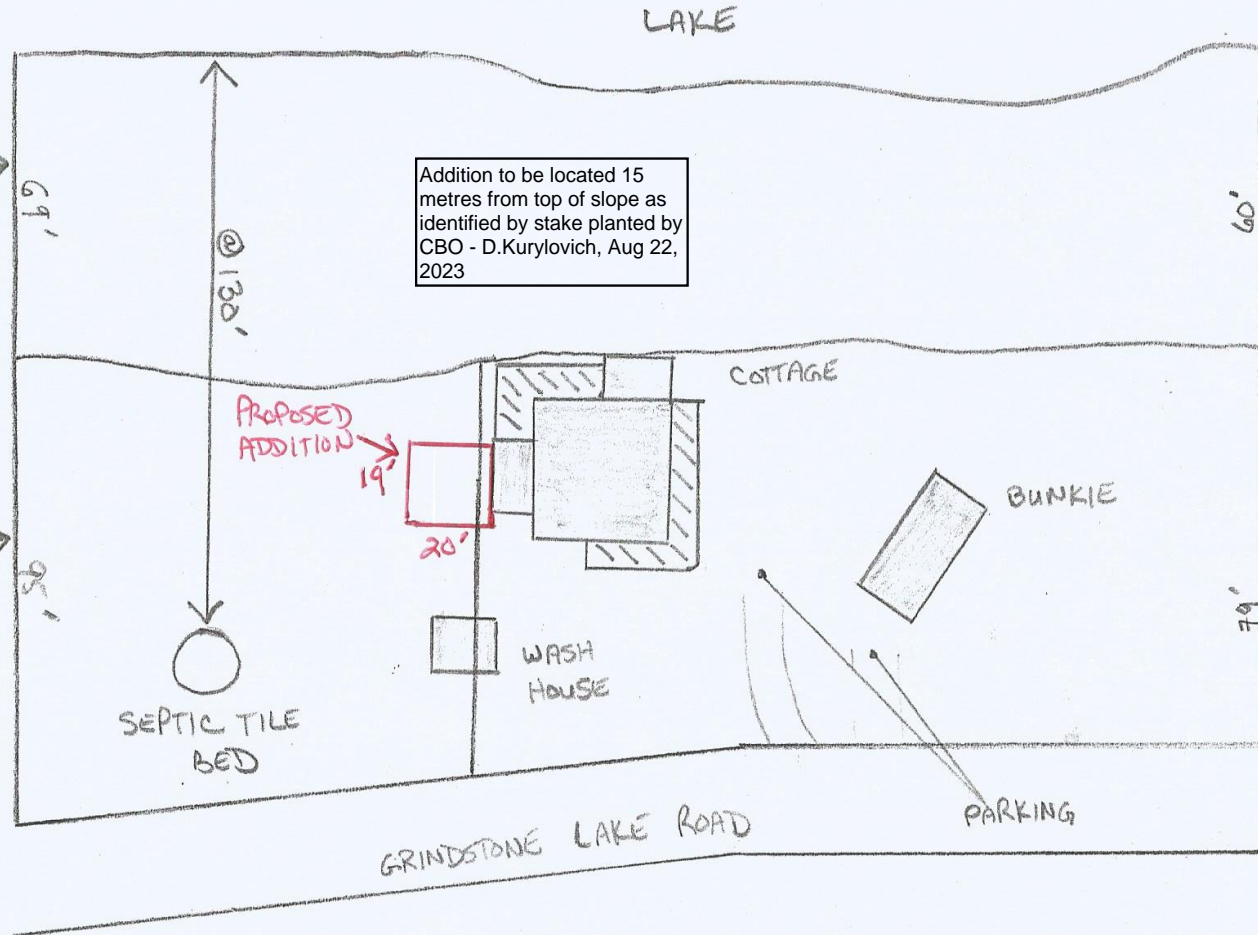 LAKE
Addition to be located 15
metres from top of slope as
identified by stake planted by
CBO - D.Kurylovich, Aug 22,
2023
69'
@ 130'
60'
COTTAGE
PROPOSED
ADDITION
19'
20'
BUNKIE
95'
79'
WASH
HOUSE
SEPTIC TILE
BED
PARKING
GRINDSTONE LAKE ROAD